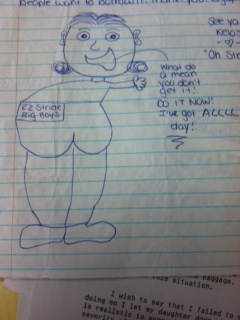 people want to borrow it. Thank you
See ya
"Oh Str
What do
a mean
you don't
get it!
DO IT NOW!
I've got ALLLL
day!
EZ Stride
Big Boy's
baggage.
this situation.
I wish to say that I failed to
doing so I let my daughter down
is realistic to
severity